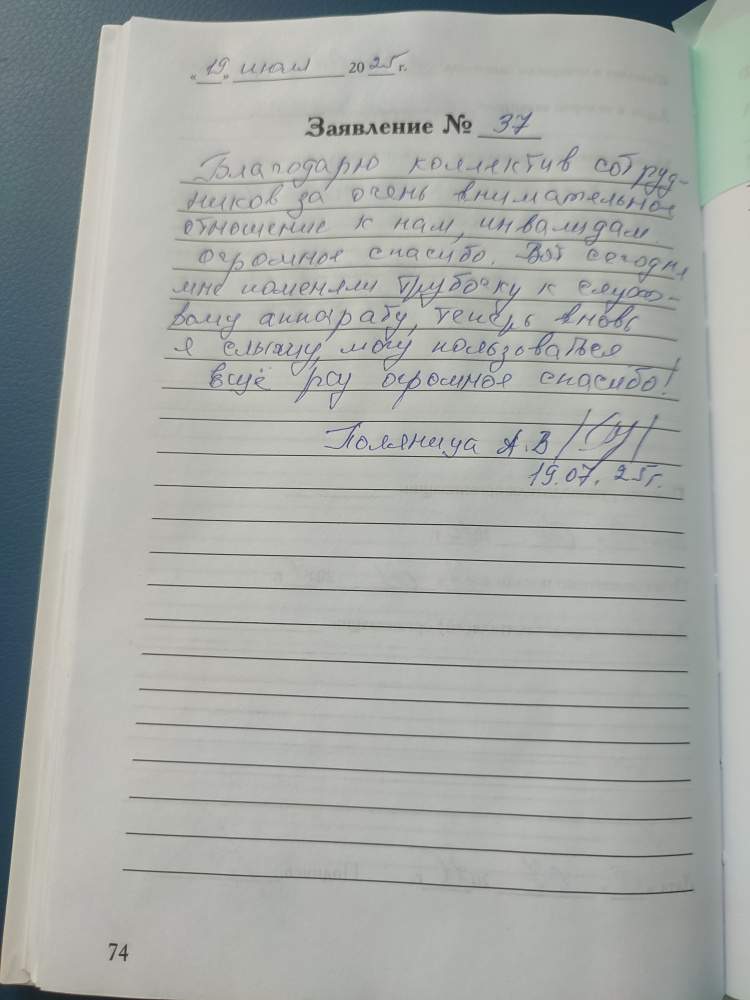 « 19 » июля 2025 г.
Заявление № 37
Благодарю коллектив сотруд-
ников за очень внимательное
отношение к нам, инвалидам.
огромное спасибо. Вот сегодня
мне поменяли трубочку к слухо-
вому аппарату, теперь вновь
я слышу, могу пользоваться
ещё рау огромное спасибо!
А.В
19.07.25г.
74